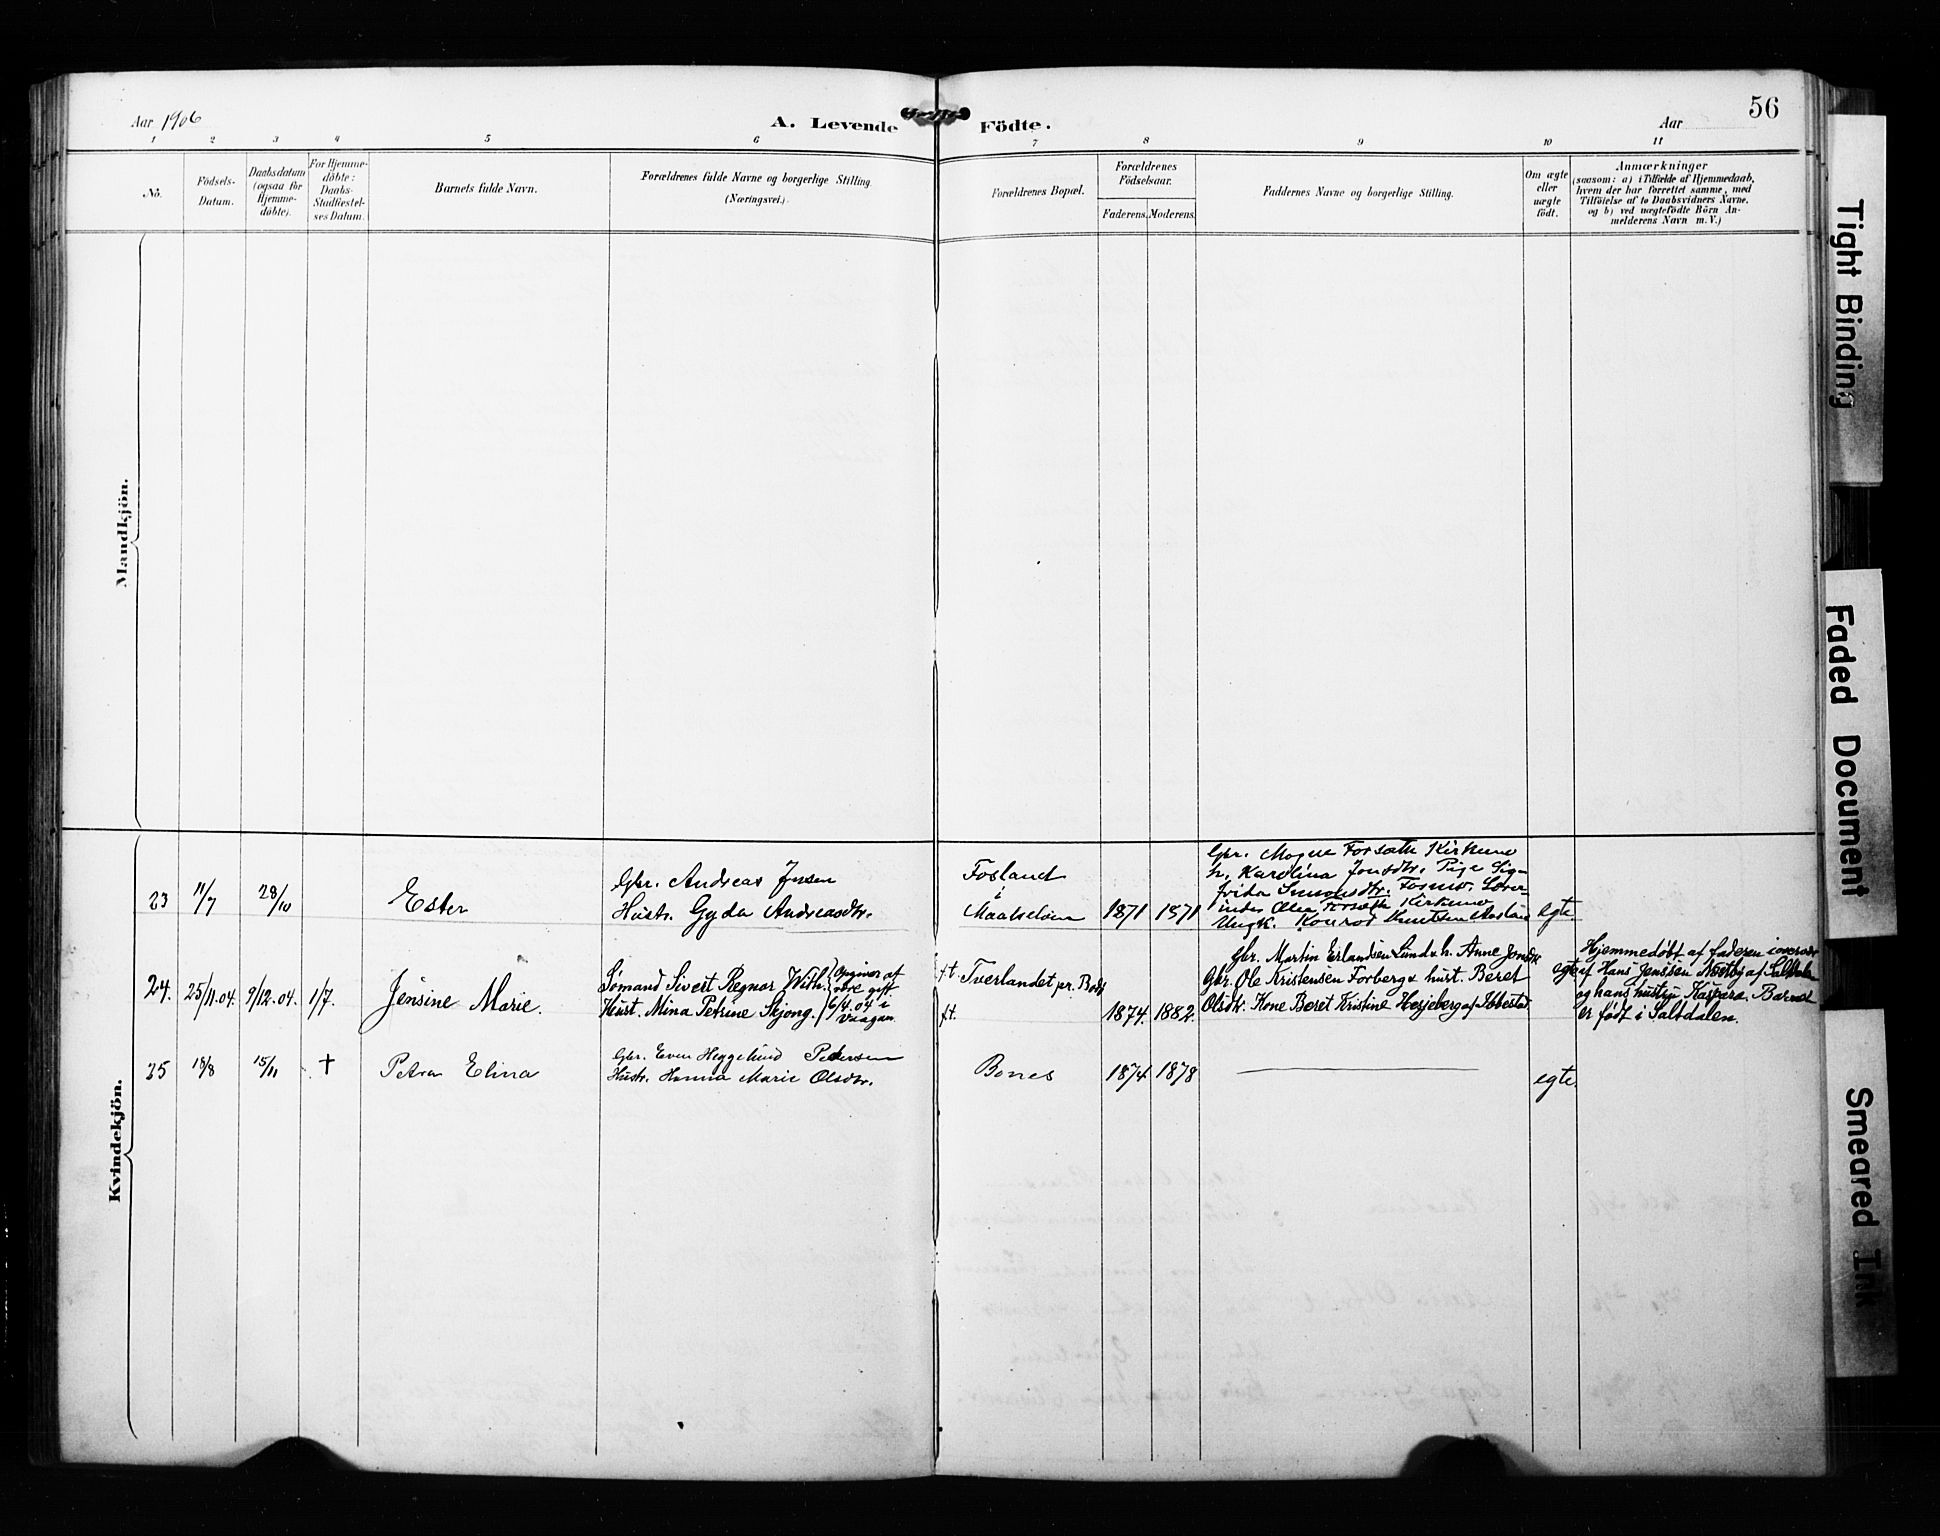 Aar 1906
A. Levende Födte.
Aar
56
1 2 3 4 5 6 7 8 9 10 11
No.
Födsels-
Datum.
Daabsdatum
(ogsaa for
Hjemme-
døbte).
For Hjemme-
døbte:
Daabs-
Stadfæstel-
ses Datum.
Barnets fulde Navn.
Forældrenes fulde Navne og borgerlige Stilling.
(Næringsvei.)
Forældrenes Bopæl.
Forældrenes
Födselsaar.
Faderens.
Moderens.
Faddernes Navne og borgerlige Stilling.
Om ægte
eller
uægte
födt.
Anmærkninger
(saasom: a) i Tilfælde af Hjemmedaab,
hvem der har forrettet samme, med
Tilföielse af to Daabsvidners Navne,
og b) ved uægtefödte Börn An-
melderens Navn m. V.)
Mandkjön.
Kvindekjön.
23 11/7 28/10 Ester
Gbr. Andreas Jensen
Hustr. Gyda Andreasdtr.
Fosland
i
Maalselven 1871 1871
Gbr. Mogne Forsæth Kirkemo
h. Karolina Jonsdtr. Pige Sig-
frida Simonsdtr. Fosmo.
Olea Forsæth Kirkemo
Ungk. Konrad Knutsen
egte.
24. 25/11.04. 9/12.04. 1/7. Jensine Marie.
Sømand Sivert Regnor With.
Hust. Mina Petrine Skjong.
opgiver at
være gift
6/4.04 i
Vaagan
ft Tverlandet pr. Bodø
ft. 1874. 1882.
Gbr. Martin Erlandsen Lund & h. Anne Jensdtr
Gbr. Ole Kristensen Forberg & hust. Beret
Olsdtr. Kone Beret Kristine Hesjeberg af Ibbestad
egte
Hjemmedøbt af faderen i overvær
af Hans Jenssen Næstby af Saltdalen
og hans hustru Kaspara. Barnet
er født i Saltdalen.
25 18/8 15/11 † Petra Elina
Gbr. Even Heggelund Pedersen
Hustr. Hanna Marie Olsdtr.
Bones 1874 1878
egte.
Tight Binding
Faded Document
Smeared Ink